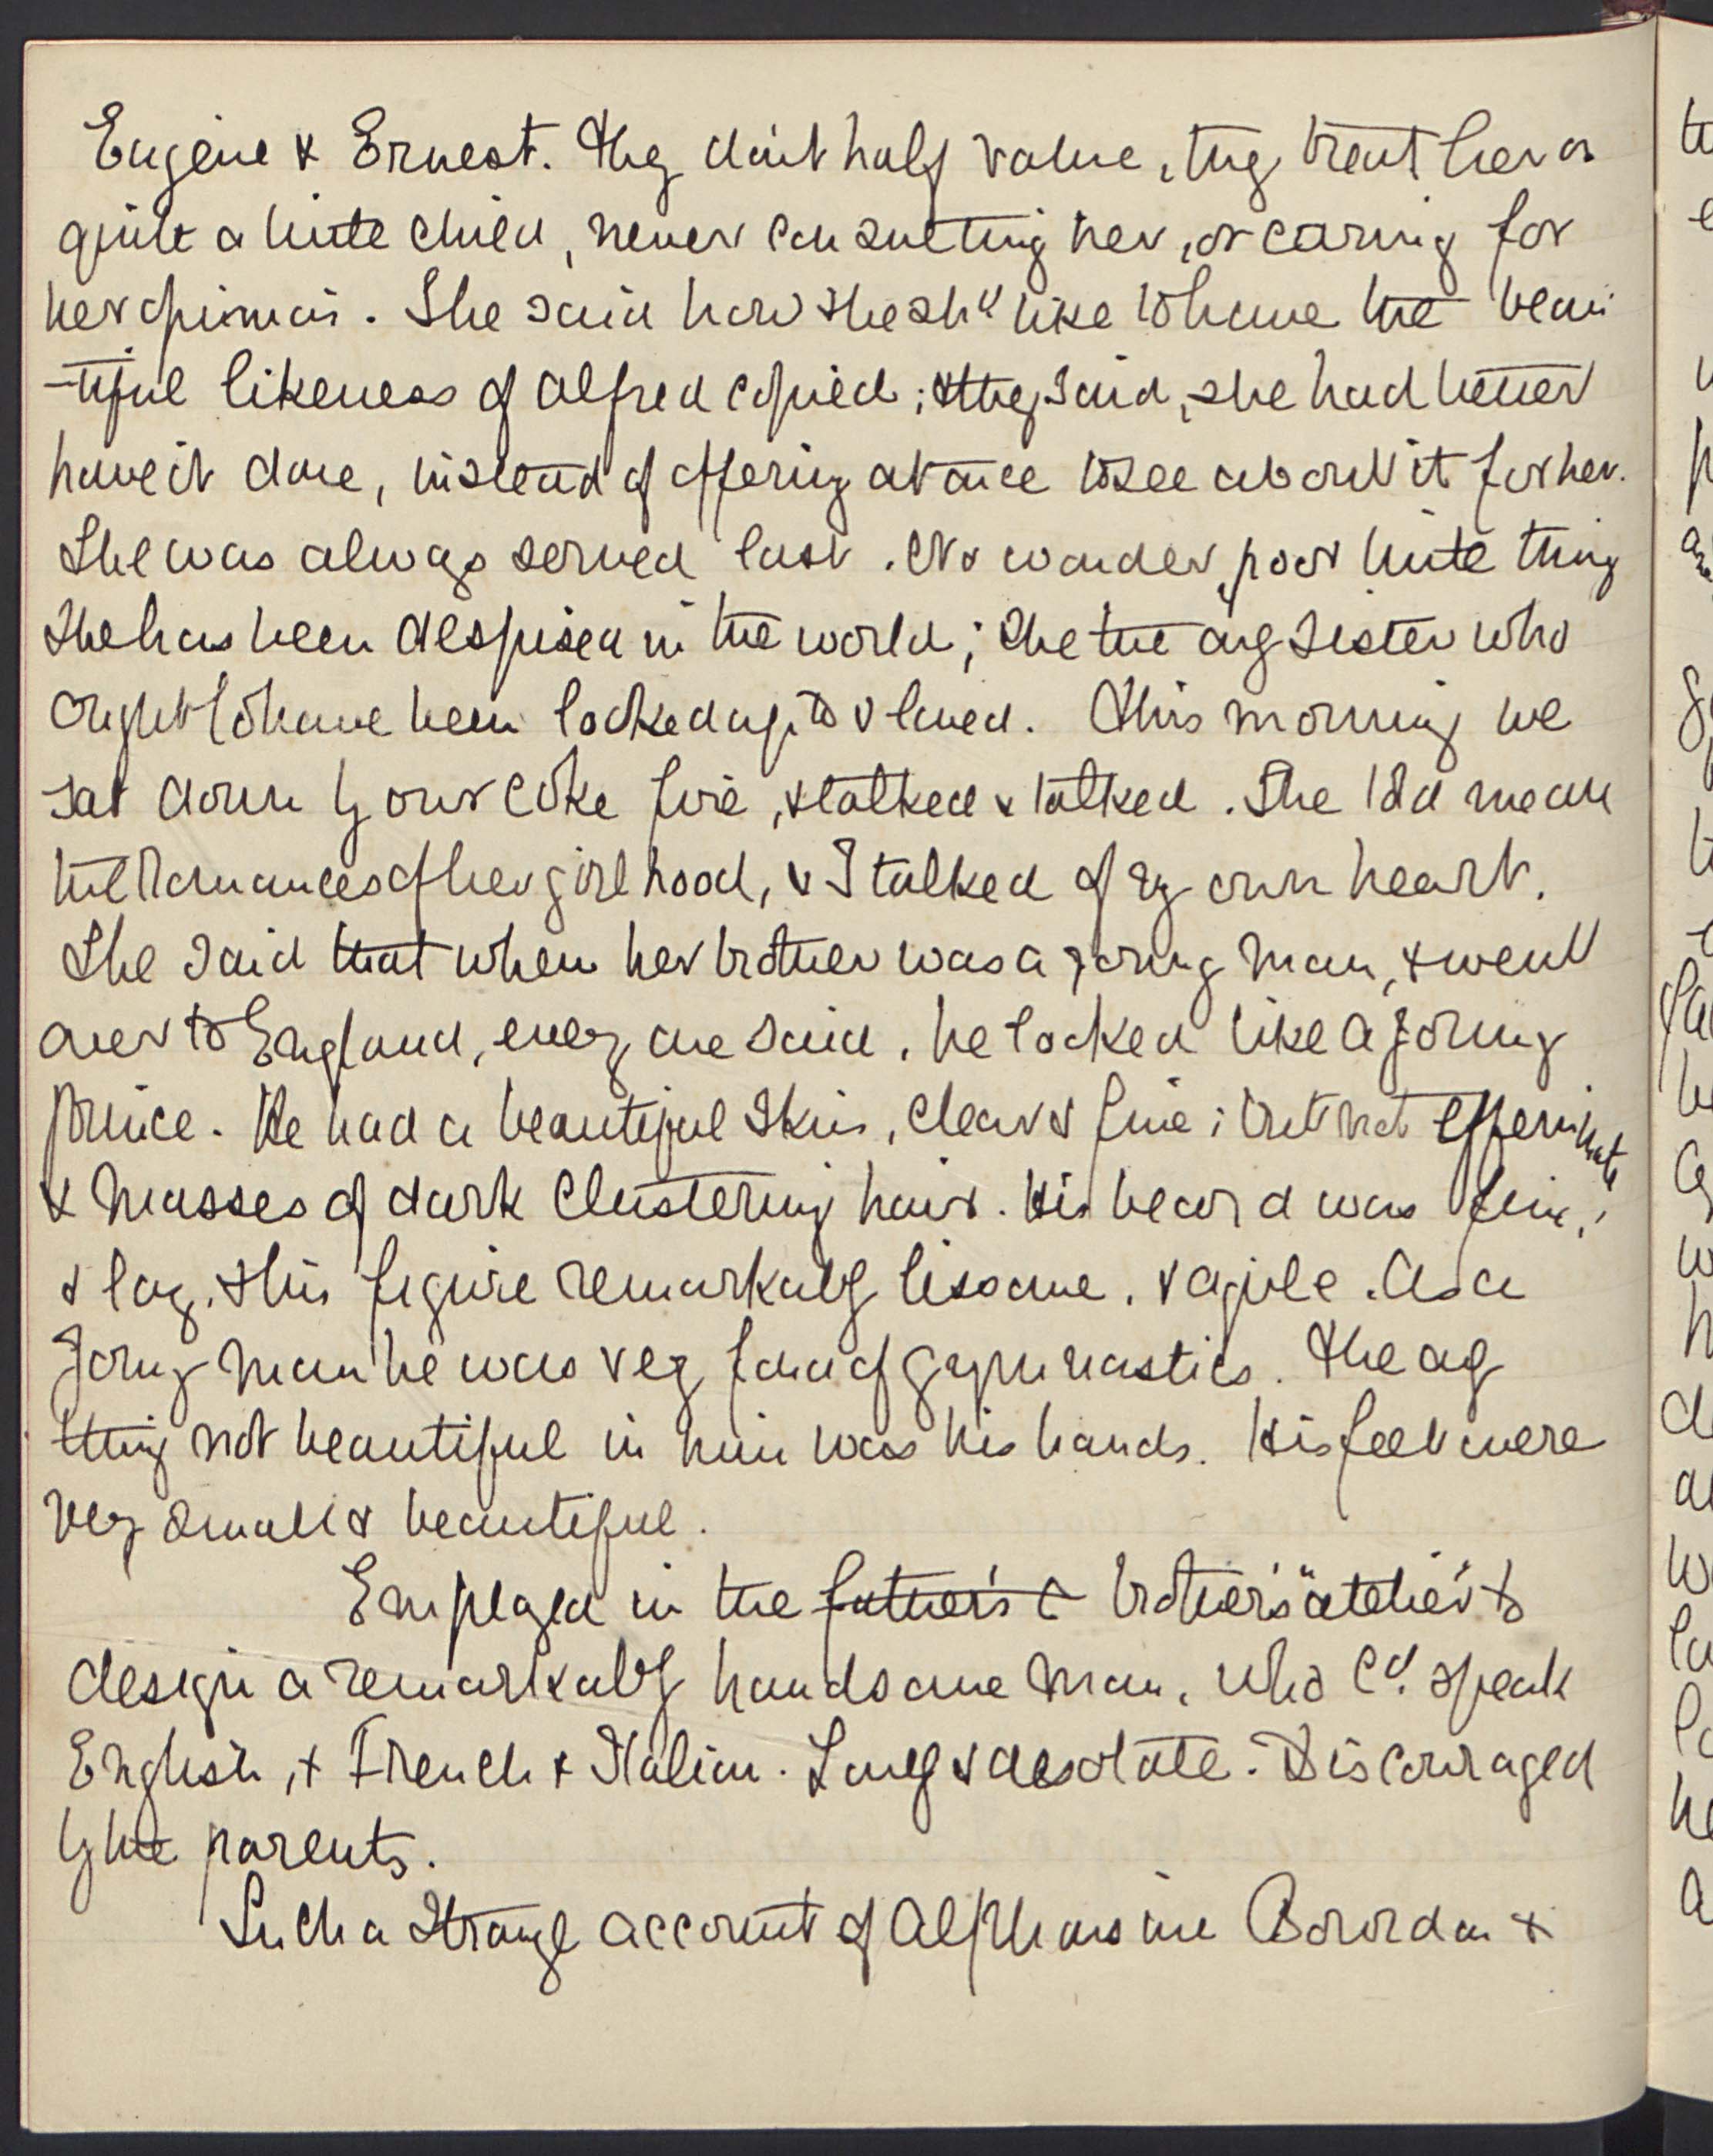 Eugène & Ernest. They don't half value, they treat her as
quite a little child, never consulting her, or caring for
her opinion. She said how she shd like to have the beau
-tiful likeness of Alfred copied; & they said, she had better
have it done, instead of offering at once to see about it for her.
She was always served last. No wonder, poor little thing
she has been despised in the world; she the only sister who
ought to have been looked up to & loved. This morning we
sat down by our coke fire, & talked & talked. She told me all
the romances of her girlhood, & I talked of my own heart.
She said that when her brother was a young man, & went
over to England, every one said, he looked like a young
prince. He had a beautiful skin, clear & fine; but not effeminate
& masses of dark clustering hair. His beard was fine,
& long, & his figure remarkably lissome, & agile. As a
young man he was very fond of gymnastics. The only
thing not beautiful in him was his hands. His feet were
very small & beautiful.
Employed in the father's & brother's "atelier" to
design a remarkably handsome man, who cd. speak
English, & French & Italian. Lonely & desolate. Discouraged
by the parents.
Such a strange account of Alphonsine &